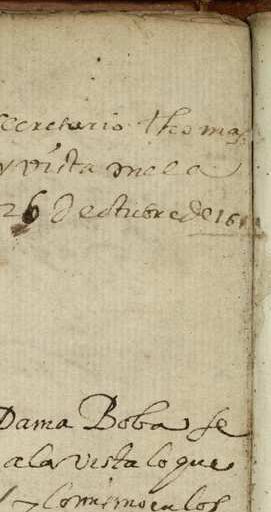 secretario Thomas
y vista mela
26 de octubre de 161
Dama Boba se
a la vista lo que
y lo mismo en los